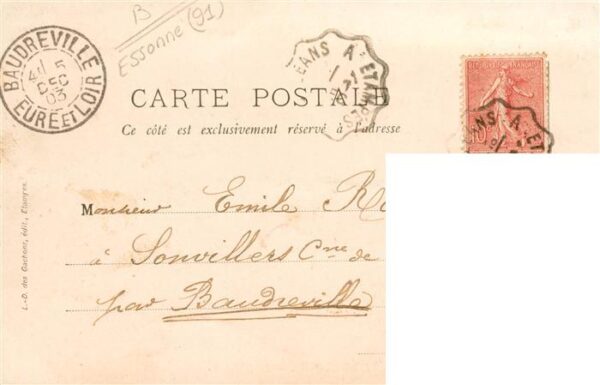 B
Essonne (91)
BAUDREVILLE
5
DEC
03
EURE ET LOIR
EANS A ETAMPES
CARTE POSTALE
Ce côté est exclusivement réservé à l'adresse
EANS A ET
10
Monsieur Emile R
à Sonvillers Cne de
par Baudreville
L.-D. des Gachons, édit., Etampes.